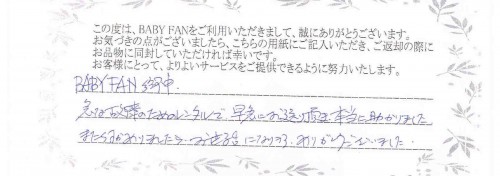 この度は、BABY FANをご利用いただきまして、誠にありがとうございます。
お気づきの点がございましたら、こちらの用紙にご記入いただき、ご返却の際に
お品物に同封していただければ幸いです。
お客様にとって、よりよいサービスをご提供できるように努力いたします。
BABY FAN 御中
急な故障のためのレンタルで、早急にお送り頂き本当に助かりました
また何かありましたら、お世話になります。ありがとうございました